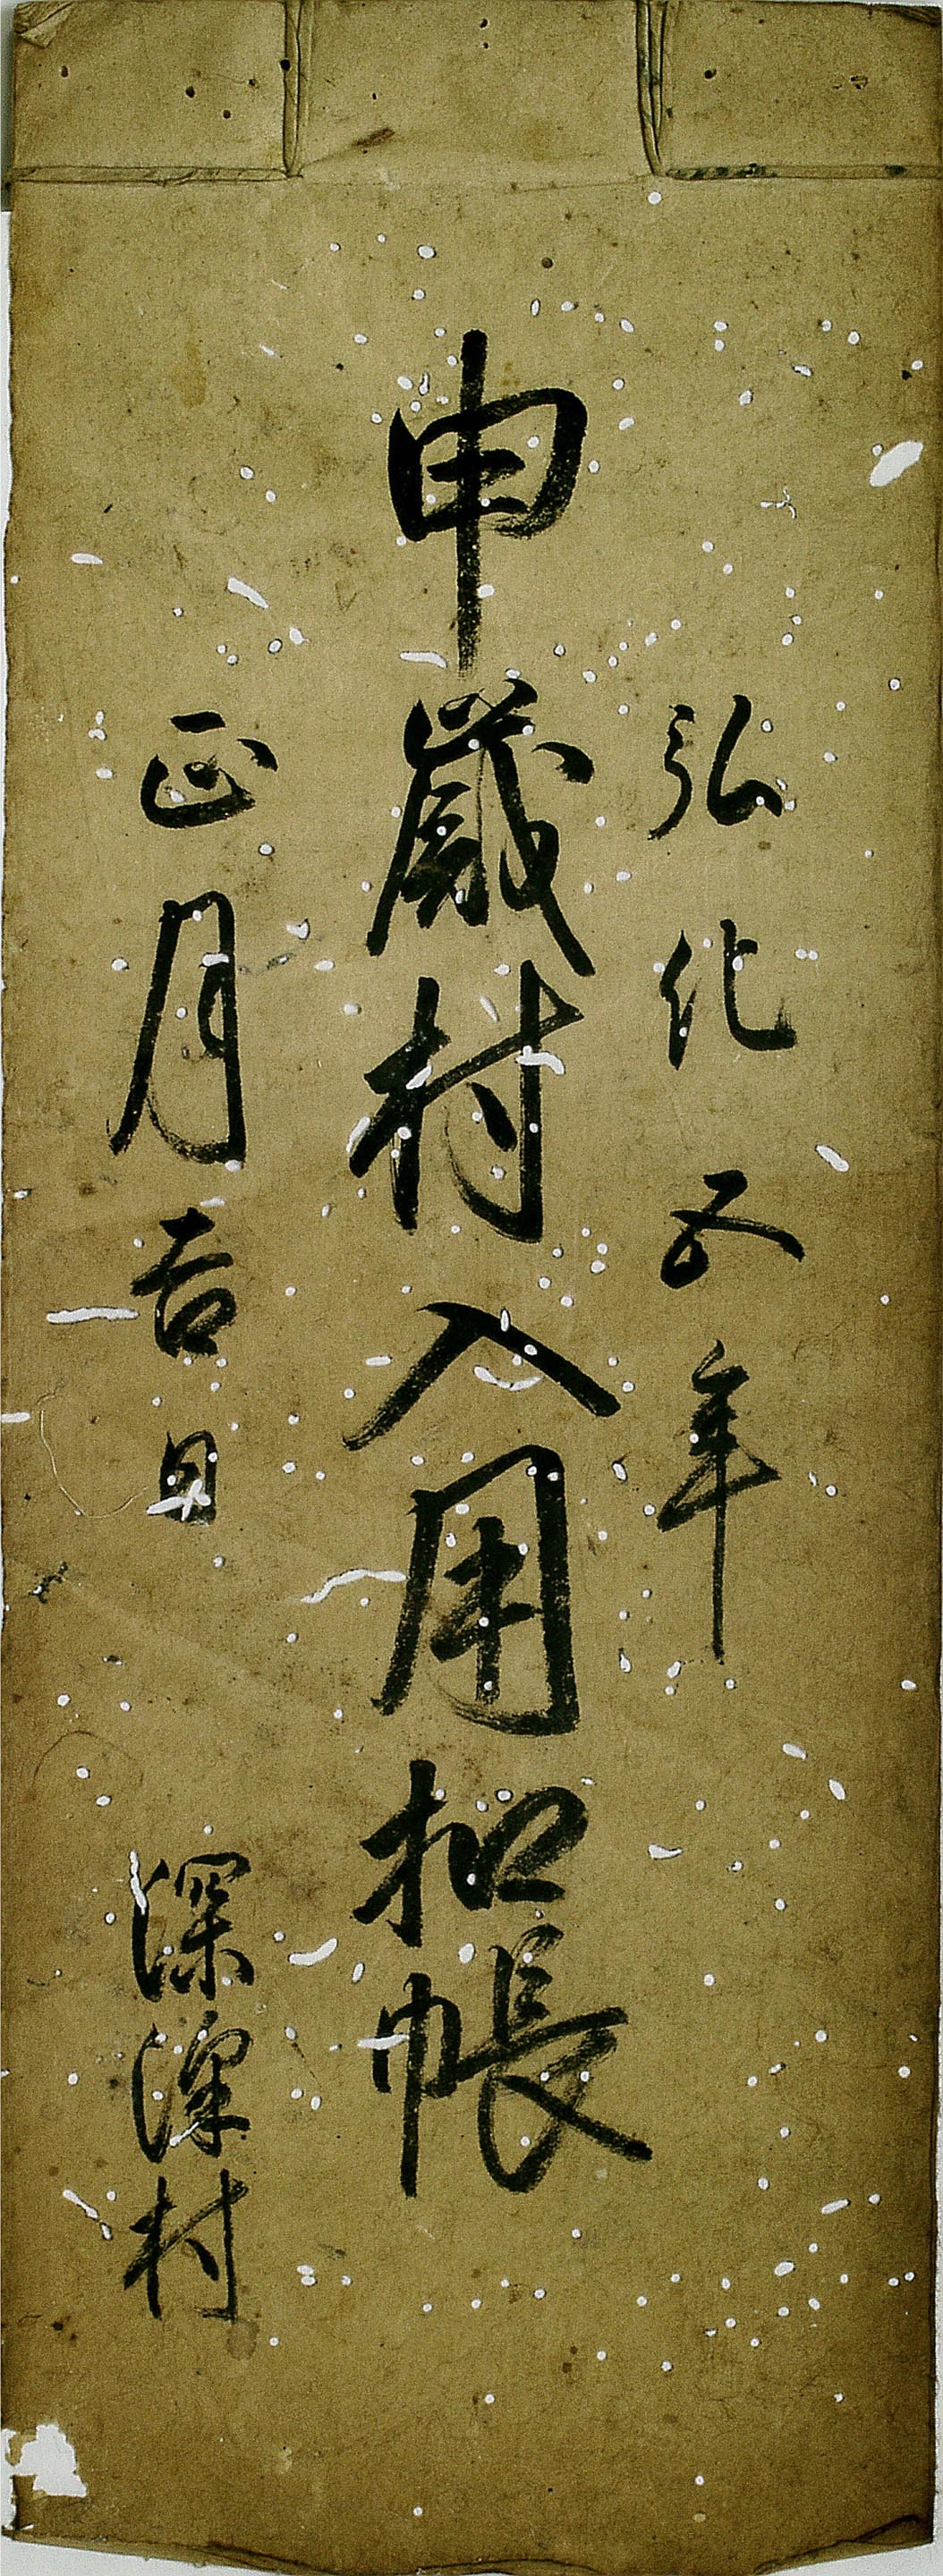 弘化五年
申歳村入用扣帳
正月吉日
深深村